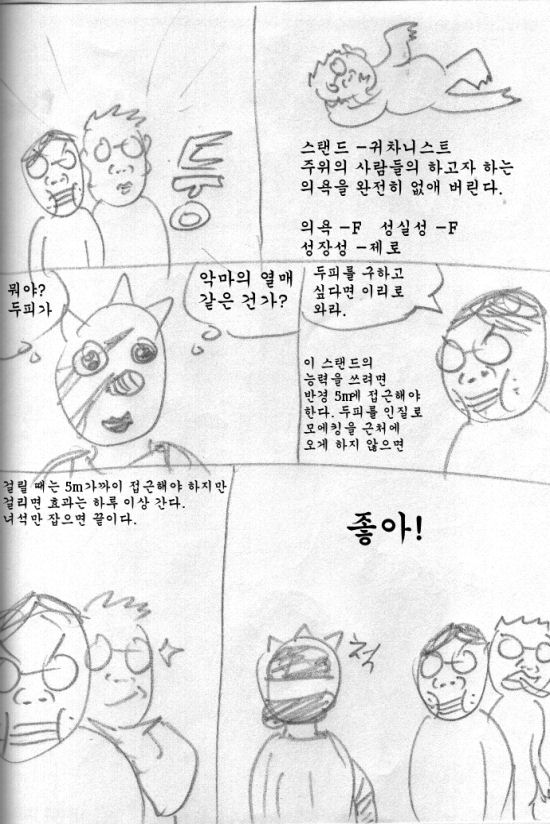 두둥
스탠드 –귀차니스트
주위의 사람들의 하고자 하는
의욕을 완전히 없애 버린다.
의욕 –F 성실성 –F
성장성 –제로
뭐야?
두피가
악마의 열매
같은 건가?
두피를 구하고
싶다면 이리로
와라.
이 스탠드의
능력을 쓰려면
반경 5m에 접근해야
한다. 두피를 인질로
모에킹을 근처에
오게 하지 않으면
걸릴 때는 5m가까이 접근해야 하지만
걸리면 효과는 하루 이상 간다.
녀석만 잡으면 끝이다.
좋아!
척